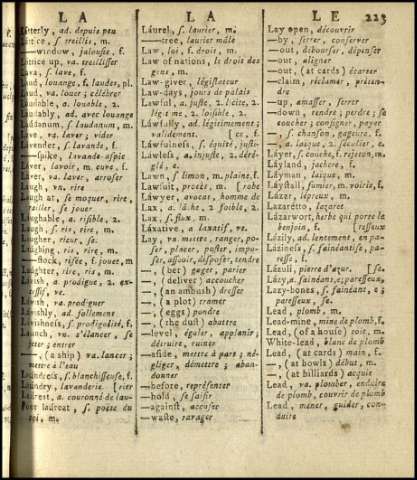 L A
L A
L E
223
Látterly, ad. depuis peu
Láttice, s. treillis, m.
—window, jalousie, f.
Láttice up, va. treillisser
Lava, s. lave, f.
Laud, louange, f. laudes, pl.
Laud, va. louer; célébrer
Láudable, a. louable, 2.
Láudably, ad. avec louange
Láudanum, s. laudanum, m.
Lave, va. laver; vider
Lávender, s. lavande, f.
—spike, lavande-aspic
Láver, lavoir, m. cuve, f.
Láver, va. laver, arroser
Laugh, vn. rire
Laugh at, se moquer, rire,
railler, se jouer
Láughable, a. risible, 2.
Laugh, s. ris, rire, m.
Laugher, rieur, se.
Laughing, ris, rire, m.
—stock, risée, f. jouet, m
Laughter, rire, ris, m.
Lávish, a. prodigue, 2. ex-
cessif, ve.
Lávish, va. prodiguer
Lávishly, ad. follement
Lávishness, s. prodigalité, f.
Launch, vn. s'élancer, se
jeter; entrer
—, (a ship) va. lancer;
mettre à l'eau
Láundress, s. blanchisseuse, f.
Láundry, lavanderie. [rier
Láureat, a. couronné de lau-
Poet laureat, s. poëte du
roi, m.
Láurel, s. laurier, m.
—tree, laurier mâle
Law, loi, f. droit, m.
Law of nations, le droit des
gens, m.
Law-giver, législateur
Law-days, jours de palais
Láwful, a. juste, 2. licite, 2.
légitime, 2. loisible, 2.
Láwfully, ad. légitimement;
validement. [ce, f.
Láwfulness, s. équité, justi-
Láwless, a. injuste, 2. déré-
glé, e.
Lawn, s. limon, m. plaine, f.
Láwsuit, procès, m. [robe
Láwyer, avocat, homme de
Lax, a. lâche, 2. foible, 2.
Lax, s. flux, m.
Láxative, a. laxatif, ve.
Lay, va. mettre, ranger, po-
ser, placer, poster, impu-
ser, assoier, disposer, tendre
—, (bet) gager, parier
—, (deliver) accoucher
—, (an ambush) dresser
—, (a plot) tramer
—, (eggs) pondre
—, (the dust) abattre
—level, égaler, applanir;
détruire, ruiner
—aside, mettre à part; né-
gliger, démettre; aban-
donner
—before, représenter
—hold, se saisir
—against, accuser
—waste, ravager
Lay open, découvrir
—by, serrer, conserver
—out, débourser, dépenser
—out, aligner
—out, (at cards) écarter
—claim, réclamer, préten-
dre
—up, amasser, serrer
—down, rendre; perdre; se
coucher; consigner, payer
—, s. chanson, gageure, f.
—, a. laïque, 2. séculier, e.
Láyer, s. couche, f. rejeton, m.
Láyland, jachere, f.
Láyman, laïque, m.
Láystall, fumier, m. voirie, f.
Lázar, lépreux, m.
Lazarétto, lazaret
Lázarwort, herbe qui porte le
benjoin, f. [resseux
Lázily, ad. lentement, en pa-
Láziness, s. fainéantise, pa-
resse, f.
Lázuli, pierre d'azur. [se.
Lázy, a. fainéant, e; paresseux,
Lazy-bones, s. fainéant, e;
paresseux, se.
Lead, plomb, m.
Lead-mine, mine de plomb, f.
Lead, (of a house) toit, m.
White-lead, blanc de plomb
Lead, (at cards) main, f.
—, (at bowls) début, m.
—, (at billiards) acquit
Lead, va. plomber, enduire
de plomb, couvrir de plomb
Lead, mener, guider, con-
duire